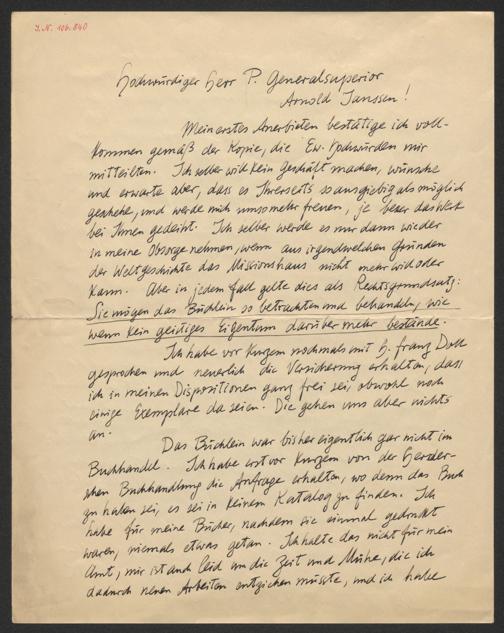 J.N. 106.840
Hochwürdiger Herr P. Generalsuperior
Arnold Janssen!
Mein erstes Anerbieten bestätige ich voll-
kommen gemäß der Kopie, die Ew. Hochwürden mir
mitteilten. Ich selber will kein Geschäft machen, wünsche
und erwarte aber, dass es Ihrerseits so ausgiebig als möglich
geschehe, und werde mich umsomehr freuen, je besser das Werk
bei Ihnen gedeiht. Ich selber werde es nur dann wieder
in meine Obsorge nehmen, wenn aus irgendwelchen Gründen
der Weltgeschichte das Missionshaus nicht mehr will oder
kann. Aber in jedem Fall gelte dies als Rechtsgrundsatz:
Sie mögen das Büchlein so betrachten und behandeln, wie
wenn kein geistiges Eigentum darüber mehr bestände.
Ich habe vor kurzem nochmals mit H. Franz Doll
gesprochen und neuerlich die Versicherung erhalten, dass
ich in meinen Dispositionen ganz frei sei, obwohl noch
einige Exemplare da seien. Die gehen uns aber nichts
an.
Das Büchlein war bisher eigentlich gar nicht im
Buchhandel. Ich habe erst vor kurzem von der Herder-
schen Buchhandlung die Anfrage erhalten, wo denn das Buch
zu haben sei, es sei in keinem Katalog zu finden. Ich
habe für meine Bücher, nachdem sie einmal gedruckt
waren, niemals etwas getan. Ich halte das nicht für mein
Amt, mir ist auch leid um die Zeit und Mühe, die ich
dadurch neuen Arbeiten entziehen müsste, und ich habe